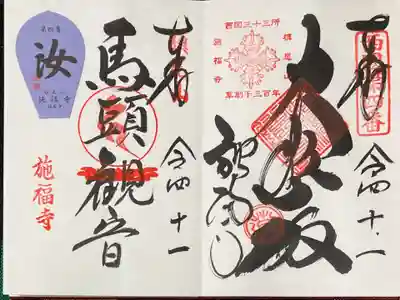 西国第四番
奉拝
令四十一
大悲殿
施福寺
西国三十三所
槇尾山
施福寺
草創千三百年
奉拝
令四十一
馬頭観音
施福寺
汝
施福寺